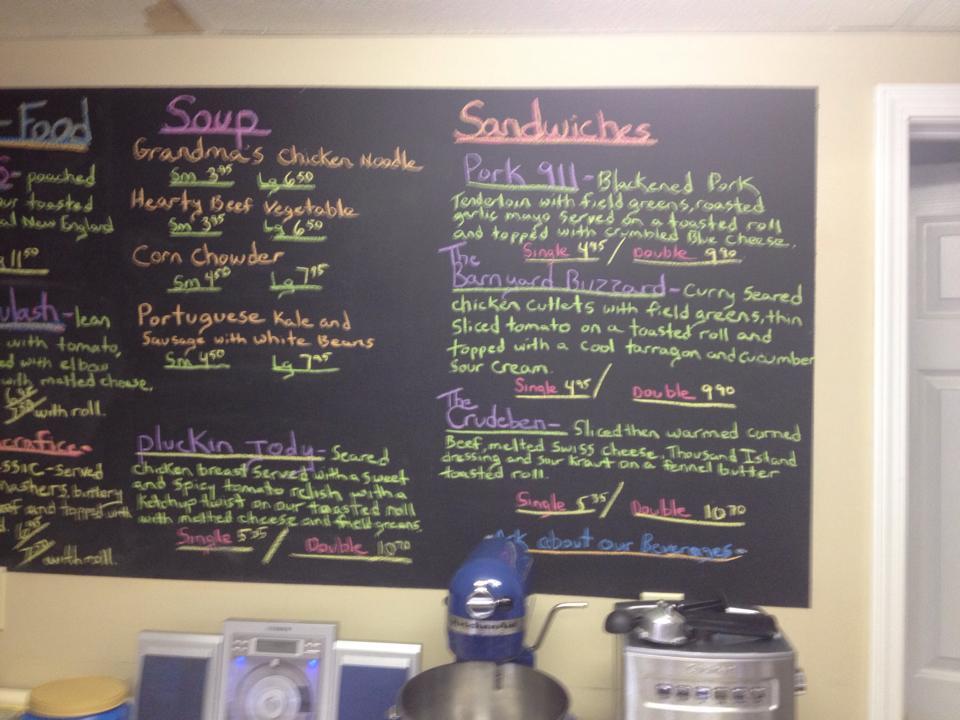 -Food
poached
our toasted
al New England
11.50
ulash - lean
with tomato,
ed with elbow
with melted cheese.
with roll.
crafice-
ssic - served
mashers, buttery
and topped with
with roll.
Soup
Grandma's Chicken Noodle
Sm 3.95 Lg 6.50
Hearty Beef Vegetable
Sm 3.95 Lg 6.50
Corn Chowder
Sm 4.50 Lg 7.95
Portuguese Kale and
Sausage with White Beans
Sm 4.50 Lg 7.95
Pluckin Jody - Seared
chicken breast served with a sweet
and spicy tomato relish with a
Ketchup twist on our toasted roll
with melted cheese and field greens.
Single 5.35 / Double 10.70
Sandwiches
Pork 911 - Blackened Pork
Tenderloin with field greens, roasted
garlic mayo served on a toasted roll
and topped with crumbled Blue Cheese.
Single 4.95 / Double 9.90
The
Barnyard Buzzard - Curry Seared
chicken cutlets with field greens, thin
sliced tomato on a toasted roll and
topped with a cool tarragon and cucumber
sour cream.
Single 4.95 / Double 9.90
The
Crudeben - Sliced then warmed corned
Beef, melted Swiss cheese, Thousand Island
dressing and sour kraut on a fennel butter
toasted roll.
Single 5.35 / Double 10.70
Ask about our Beverages-
KitchenAid